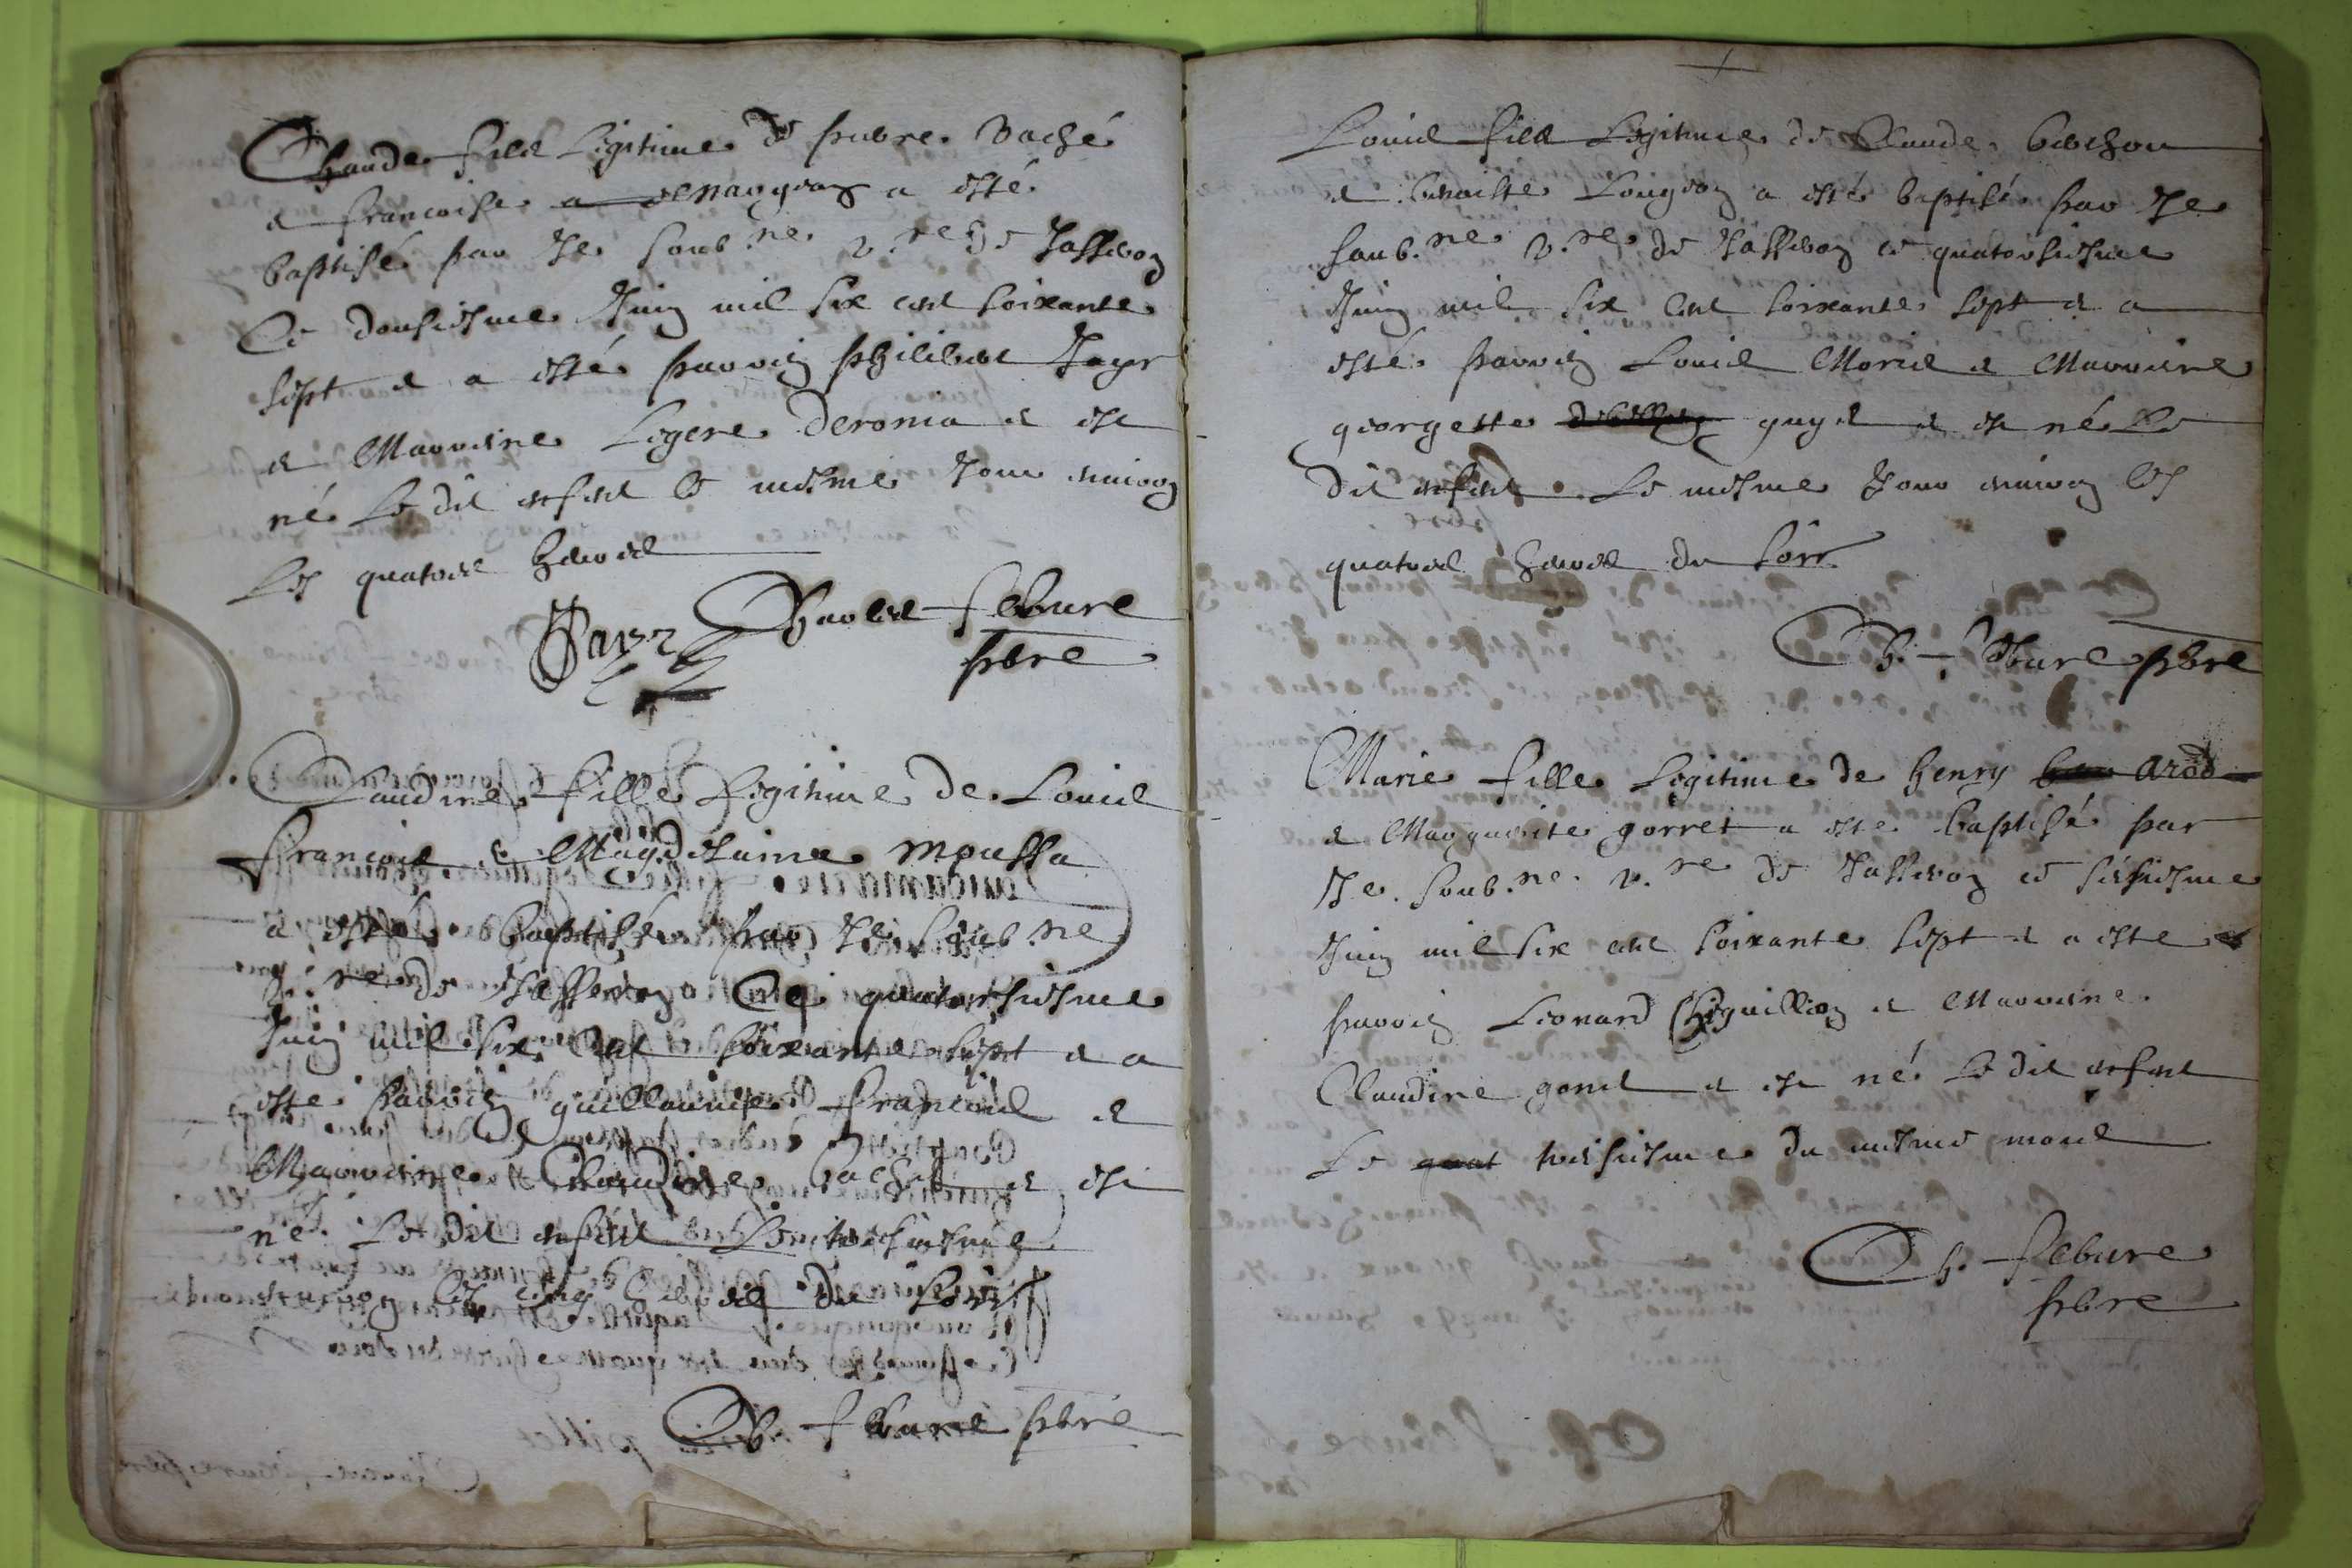 Claude fils legitime de pierre vaché
et francoise a esté
baptisé par Je soub.ne v.re de Jasseron
Ce douziesme Juin mil six cent soixante
sept et a esté parrain philibert Jayr
et Marraine Legere Deronia et est
né le dit enfant le mesme Jour environ
Les quatres heures
Jayr Charles febure
pbre
Claudine fille legitime de Louis
francois et Magdelaine moussa
a esté baptisée par Je soub.ne
v.re de Jasseron Ce quatorsiesme
Juin mil six cent soixante sept et a
esté parrain guillaume francois et
Marraine Claudine et est
né le dit enfant le
environ les cinq heures du soir
Ch. febure pbre
Louis fils legitime de Claude bochon
et benoiste Longeron a esté baptisé par Je
soub.ne v.re de Jasseron ce quatorsiesme
Juin mil six cent soixante sept et a
esté parrain Louis Morel et Marraine
georgette guyet et est né le
dit enfant le mesme Jour environ les
quatres heures du soir
Ch. febure pbre
Marie fille legitime de henry arod
et Marguerite gorret a esté baptisé par
Je soub.ne v.re de Jasseron ce seisiesme
Juin mil six cent soixante sept et a esté
parrain Leonard Chiguillion et Marraine
Claudine gonet et est né le dit enfant
Le quat treisiesme du mesme mois
Ch. febure
pbre